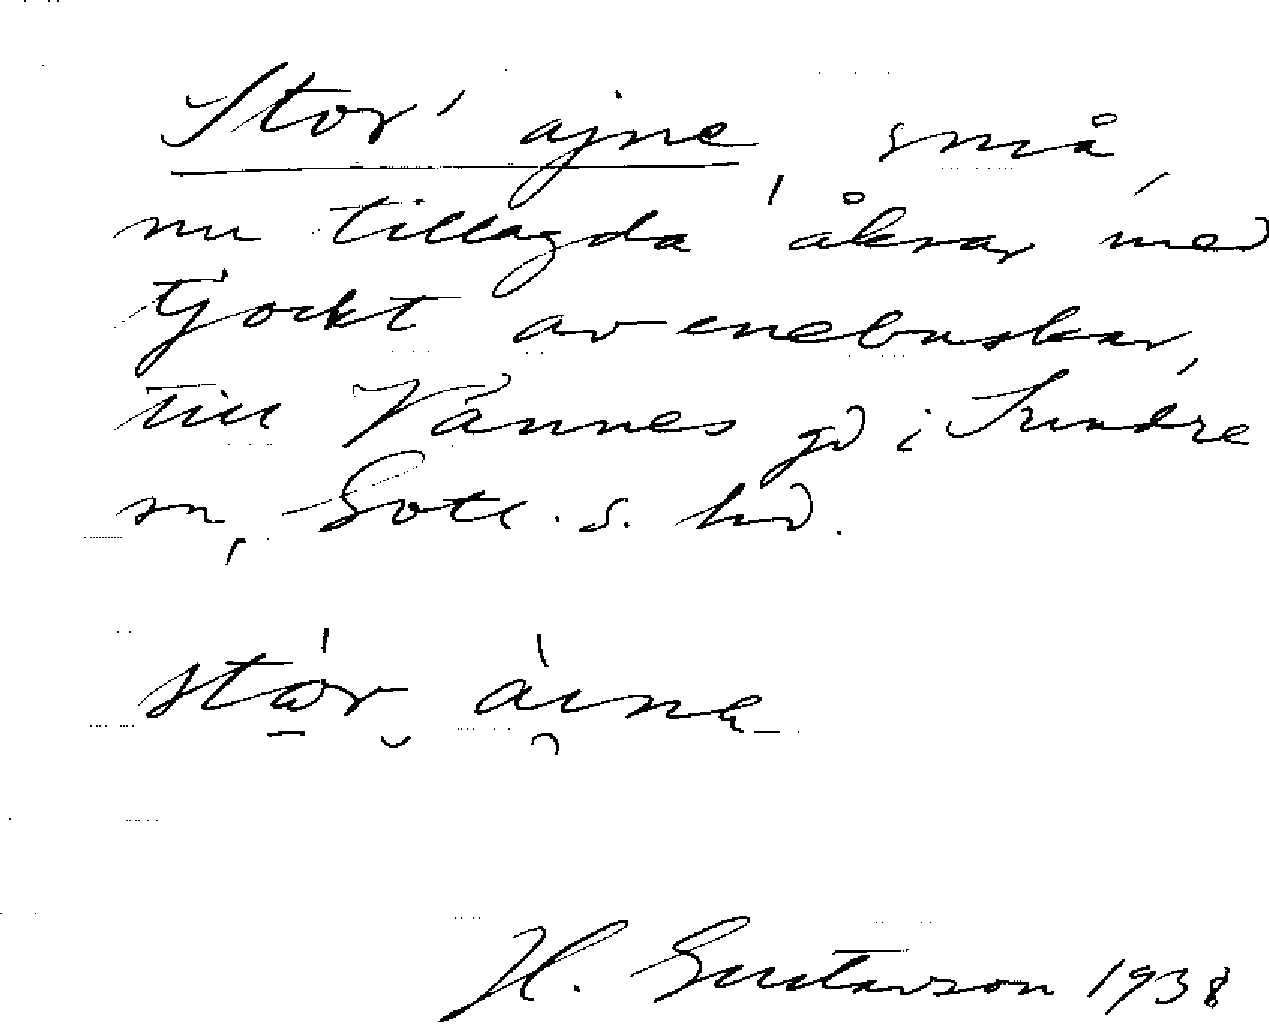 Stor' ajne, små,
nu tillagda åkrar med
tjockt av enebuskar,
till Vännes gd i Sundre
sn, Gotl. s. hd.
stor àine
H. Gustavson 1938